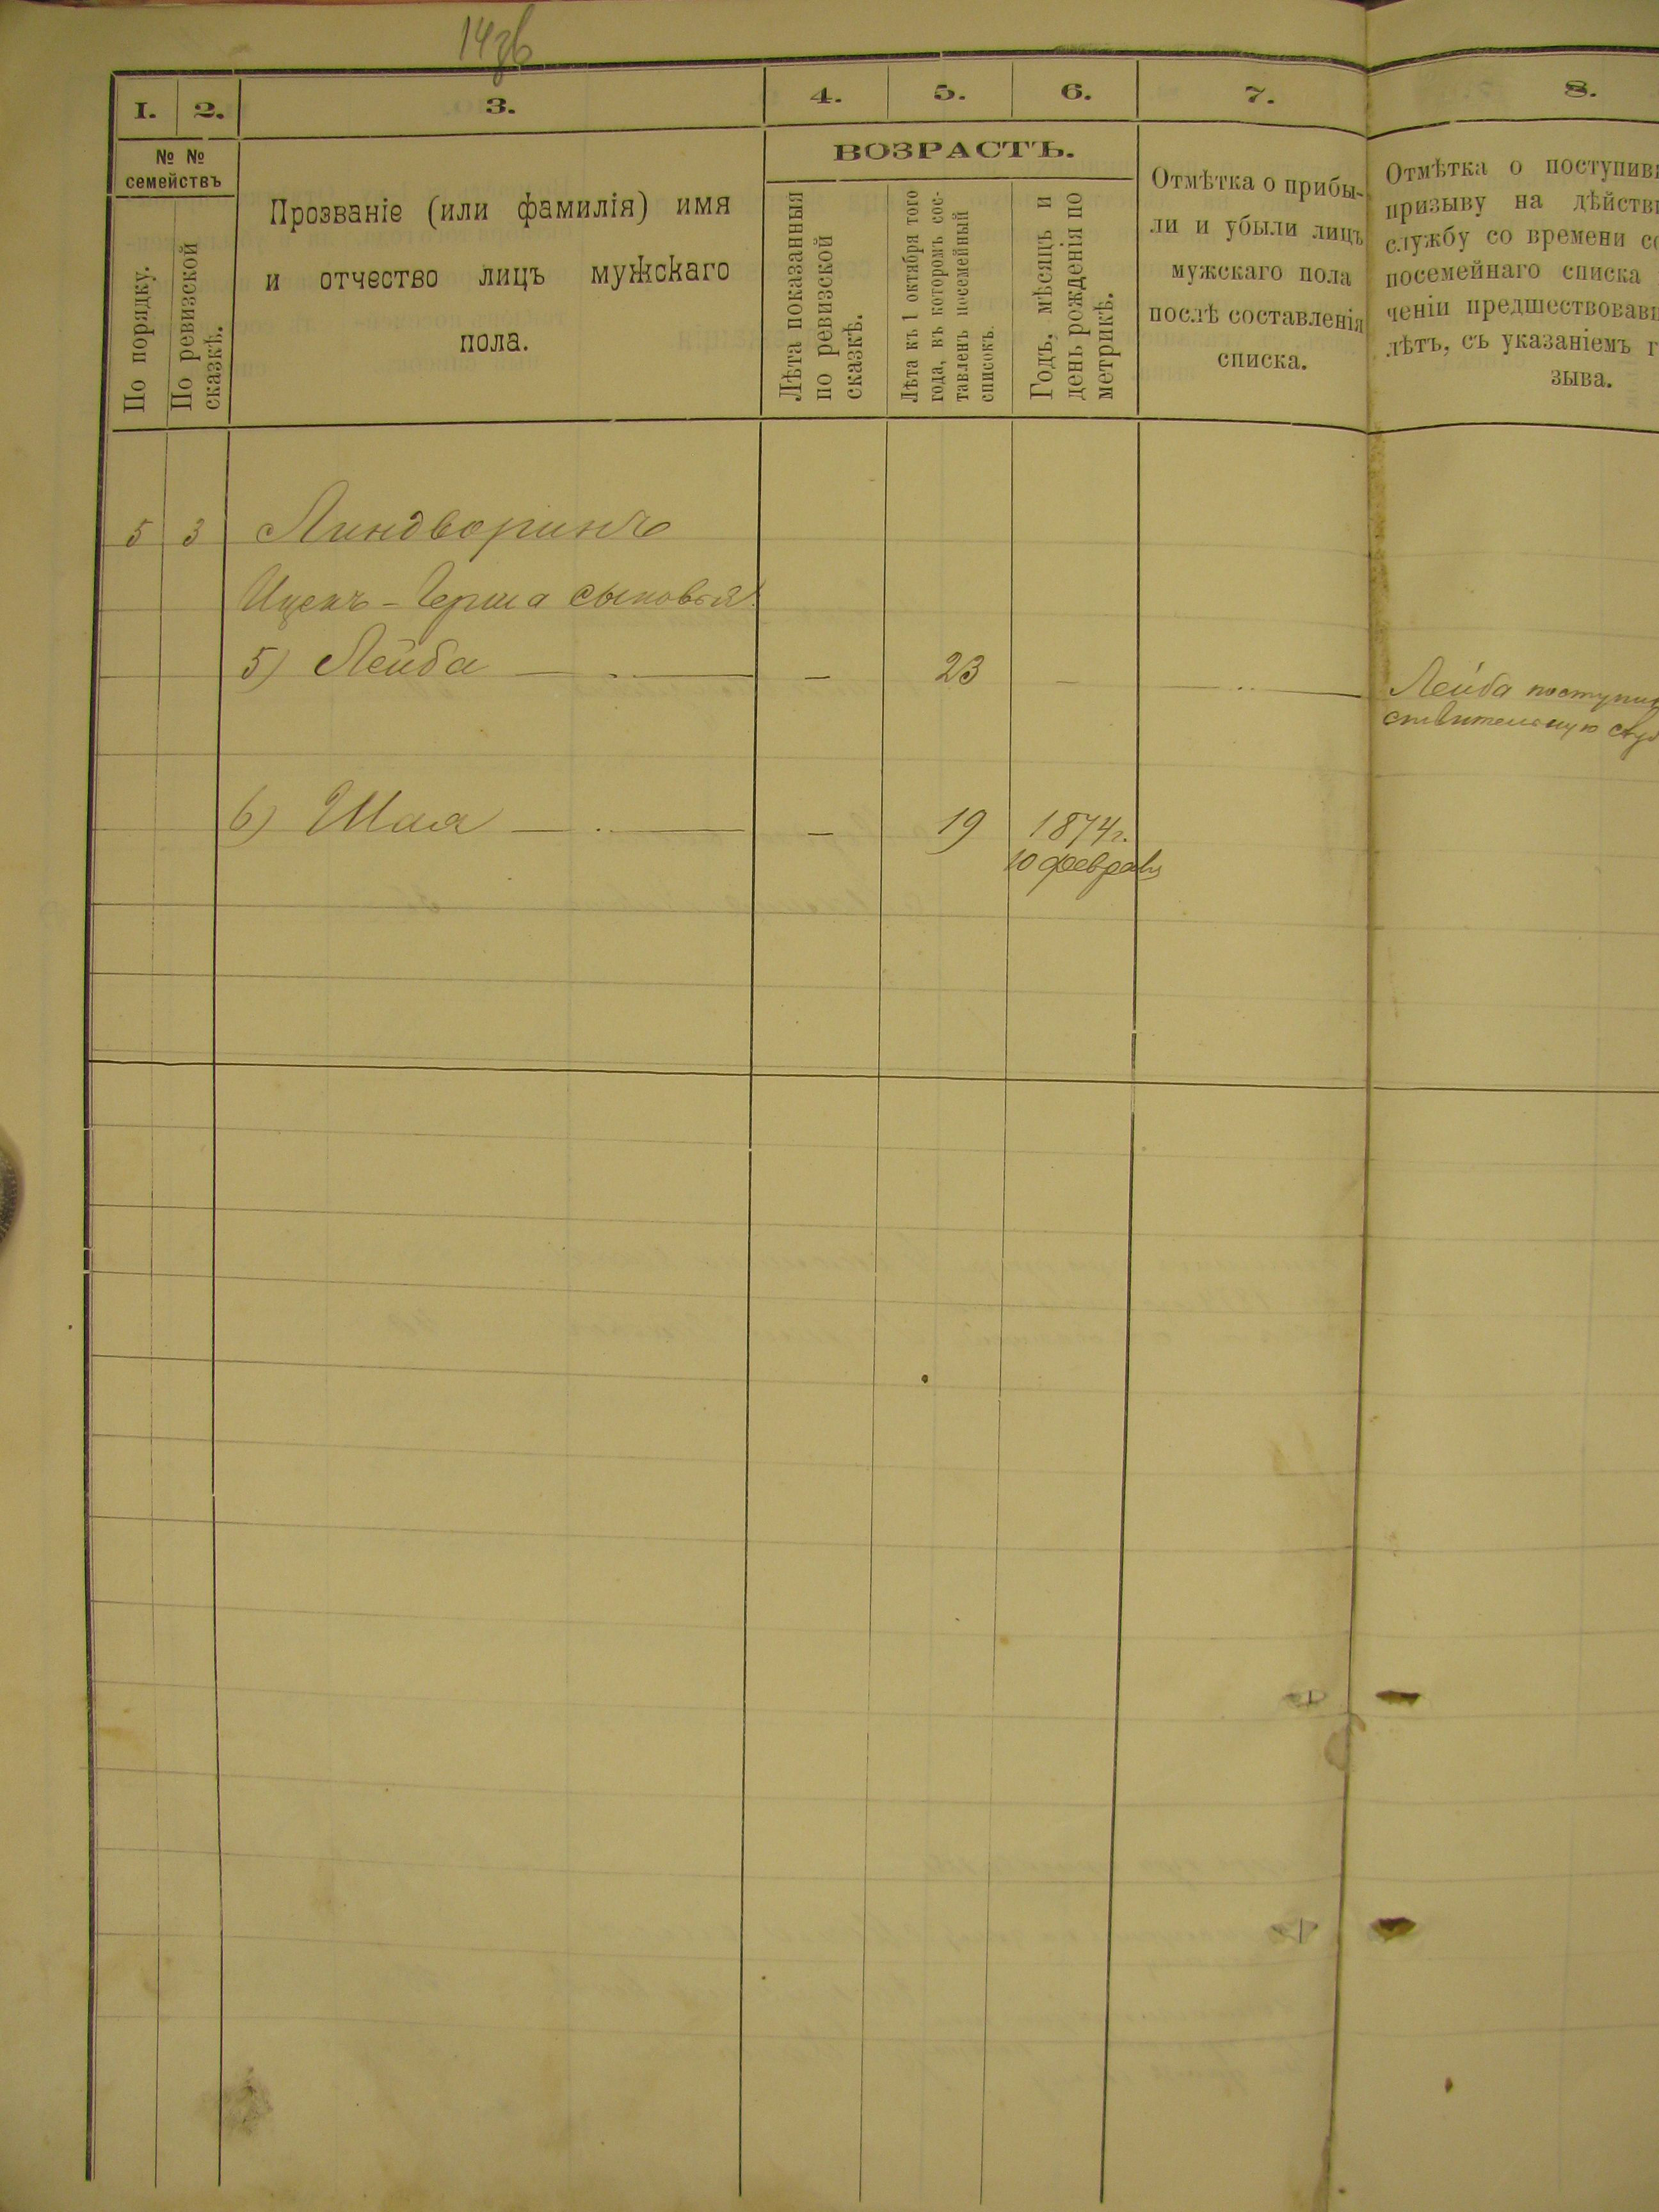 14зв
1. 2. 3. 4. 5. 6. 7. 8.
№ № семействъ
По порядку.
По ревизской сказкѣ.
Прозваніе (или фамилія) имя
и отчество лицъ мужскаго
пола.
ВОЗРАСТЪ.
Лѣта показанныя
по ревизской
сказкѣ.
Лѣта къ 1 октября того
года, въ которомъ сос-
тавленъ посемейный
списокъ.
Годъ, мѣсяцъ и
день рожденія по
метрикѣ.
Отмѣтка о прибы-
ли и убыли лицъ
мужскаго пола
послѣ составленія
списка.
Отмѣтка о поступив
призыву на дѣйстви
службу со времени со
посемейнаго списка
ченіи предшествовавш
лѣтъ, съ указаніемъ г
зыва.
5 3 Линдворинъ
Ицекъ-Герша сыновья:
5) Лейба — — 23 — —
Лейба поступил
ствительную служ
6) Шая — — 19 1874 г.
10 февраля